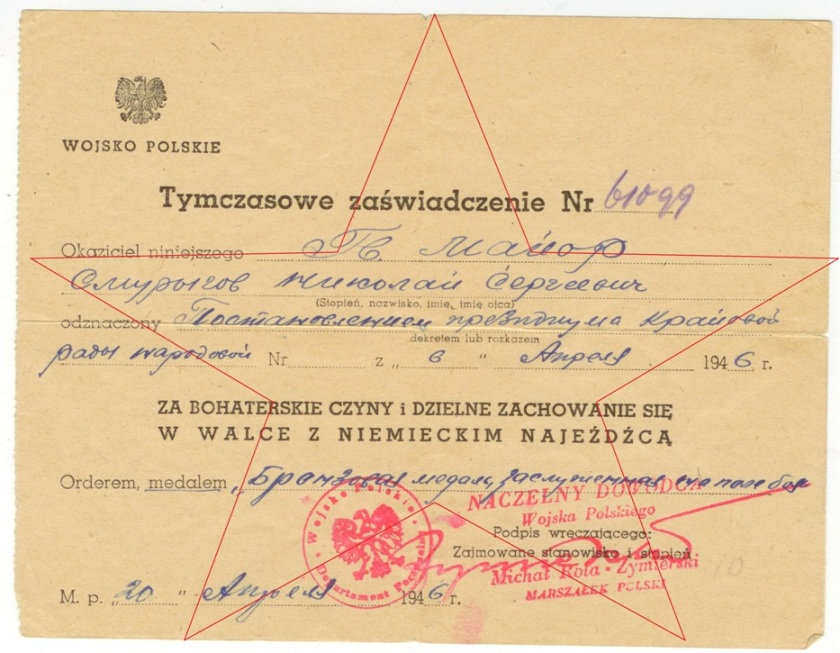 WOJSKO POLSKIE
Tymczasowe zaświadczenie Nr 61099
Okaziciel niniejszego Гв. Майор
Смурыгов Николай Сергеевич
(Stopień, nazwisko, imię, imię ojca)
odznaczony Постановлением президиума Крайовой
dekretem lub rozkazem
рады народовой Nr z „ 6 “ Апреля 1946 r.
ZA BOHATERSKIE CZYNY i DZIELNE ZACHOWANIE SIĘ
W WALCE Z NIEMIECKIM NAJEŹDŹCĄ
Orderem, medalem „Бронзовая медаль, заслуженная на поле боя
NACZELNY DOWÓDCA
Wojska Polskiego
Podpis wręczającego:
Zajmowane stanowisko i stopień
Michał Rola-Żymierski
MARSZAŁEK POLSKI
Wojsko Polskie
Departament
M. p. „20 “ Апреля 1946 r.